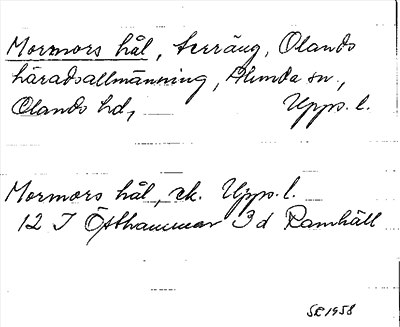 Mormors hål, terräng, Olands
häradsallmänning, Alunda sn.,
Olands hd, Upps. l.
Mormors hål, ek. Upps. l.
12 I Östhammar 3 d Ramhäll
SR 1958